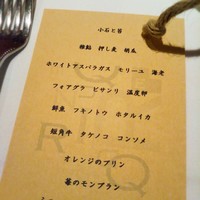 小石と苔
雑穀 押し麦 胡瓜
ホワイトアスパラガス モリーユ 海老
フォアグラ ピサンリ 温度卵
鮮魚 フキノトウ ホタルイカ
短角牛 タケノコ コンソメ
オレンジのプリン
苺のモンブラン